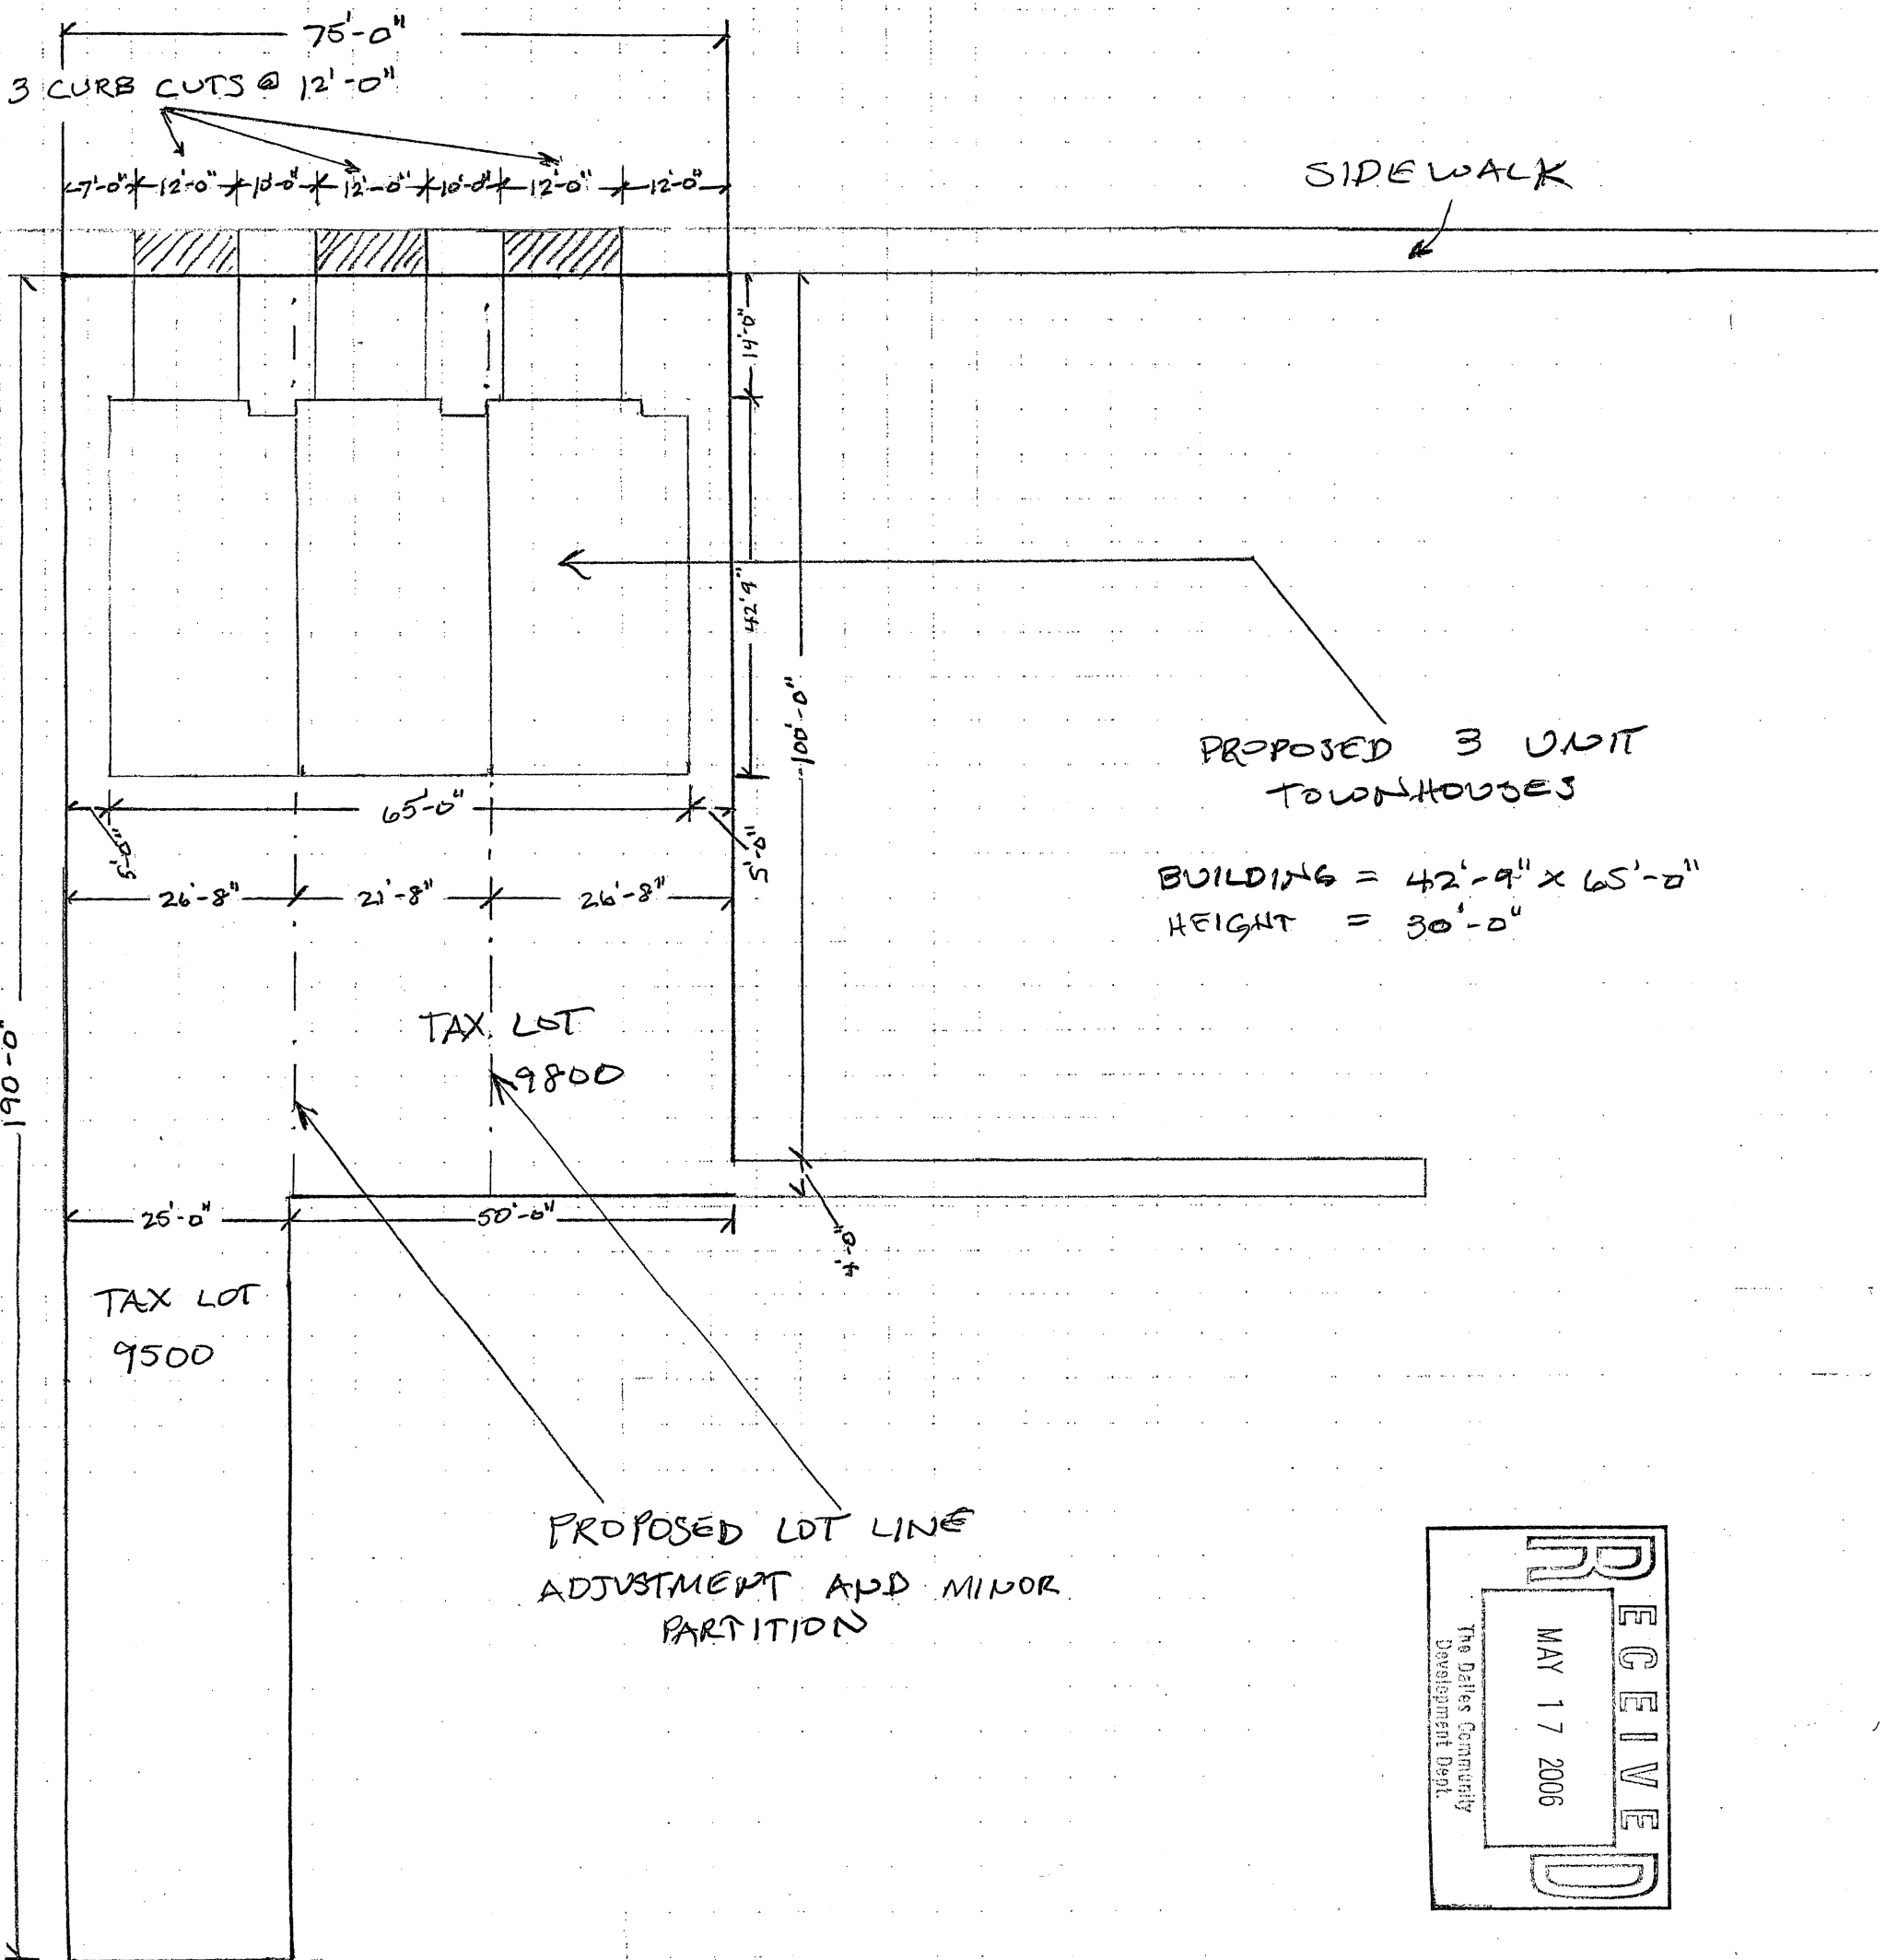 75'-0"
3 CURB CUTS @ 12'-0"
7'-0" 12'-0" 10'-0" 12'-0" 10'-0" 12'-0" 12'-0"
SIDEWALK
14'-0"
42'9"
100'-0"
PROPOSED 3 UNIT
TOWNHOUSES
65'-0"
5'-0"
5'-0"
BUILDING = 42'-9" x 65'-0"
HEIGHT = 30'-0"
26'-8" 21'-8" 26'-8"
190-0"
TAX LOT
9800
25'-0" 50'-0"
4'-0"
TAX LOT
9500
PROPOSED LOT LINE
ADJUSTMENT AND MINOR
PARTITION
RECEIVED
MAY 17 2006
The Dalles Community
Development Dept.